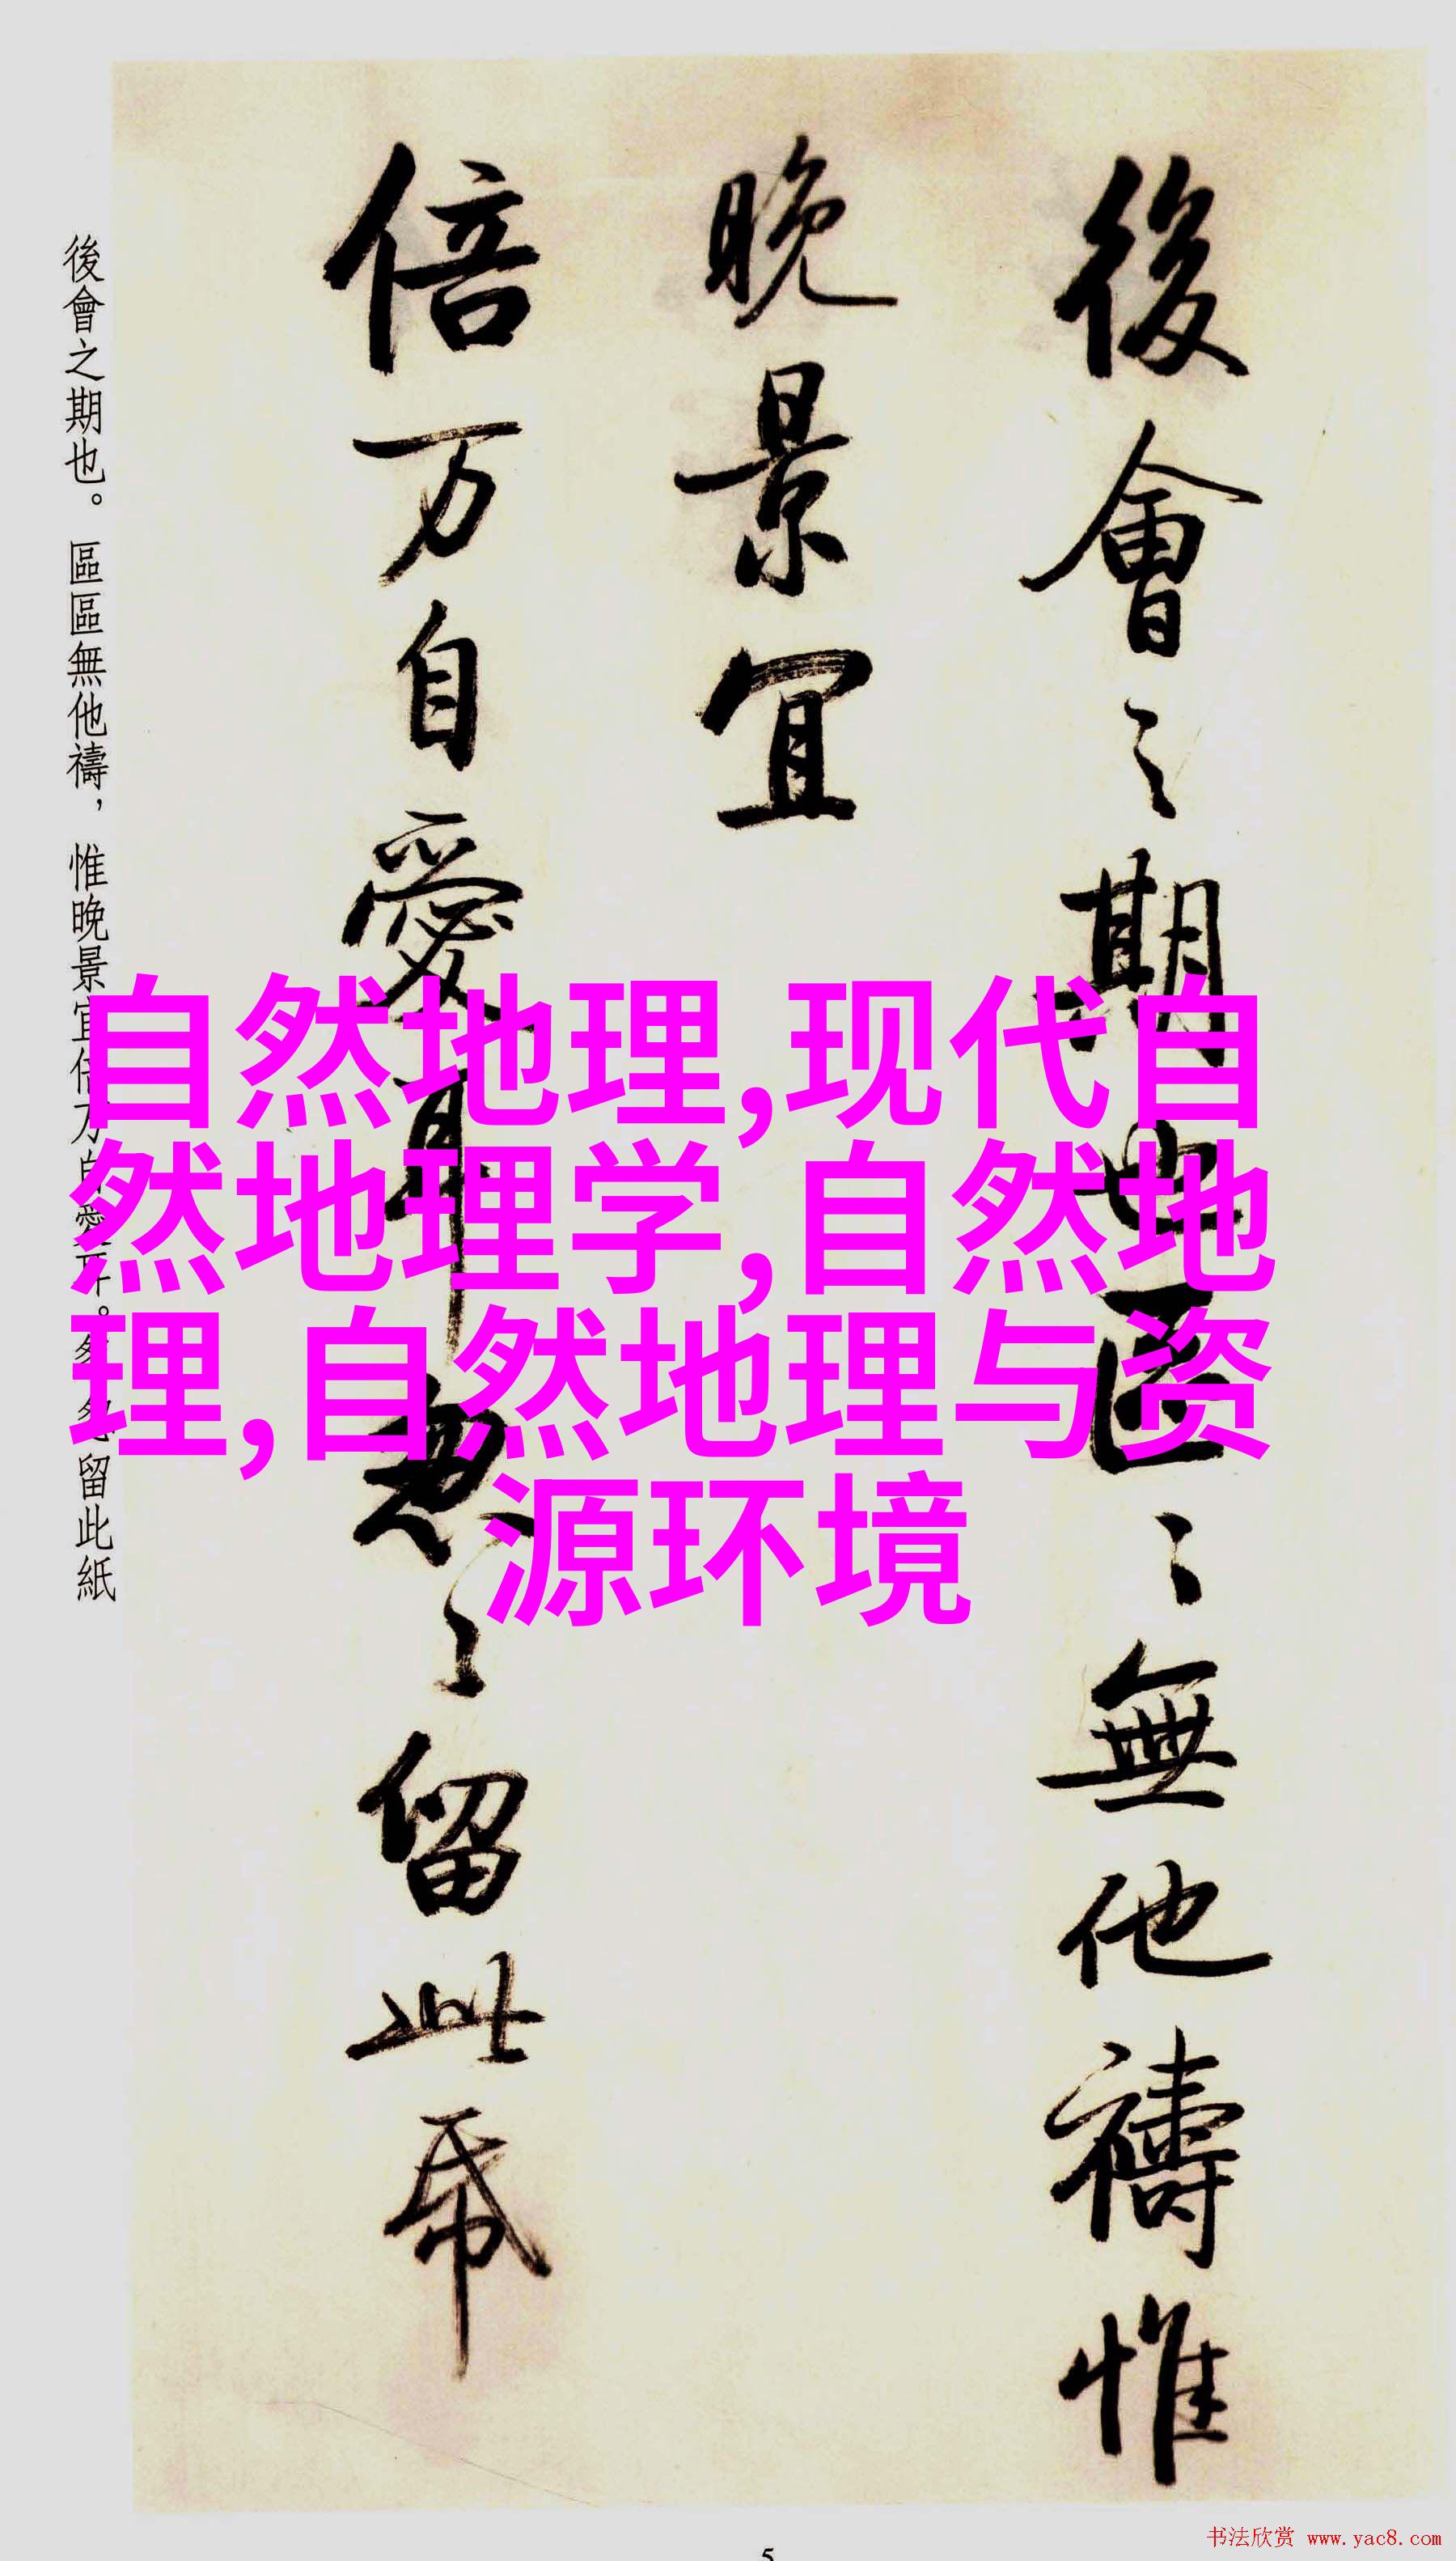 後會之期也。區區無他禱，惟晚景宜倍万自愛耳。匆匆留此紙
後會〻期也區〻無他禱惟
晚景宜
倍万自愛耳匆〻留此帋
自然地理,现代自
然地理学,自然地
理,自然地理与资
源环境
5
书法欣赏 www.yac8.com